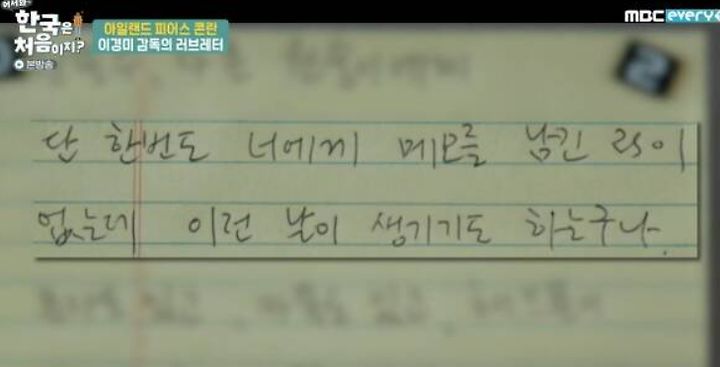 어서와~
한국은
처음이지?
본방송
아일랜드 피어스 콘란
이경미 감독의 러브레터
MBC every
단 한번도 너에게 메모를 남긴 적이
없는데 이런 날이 생기기도 하는구나.